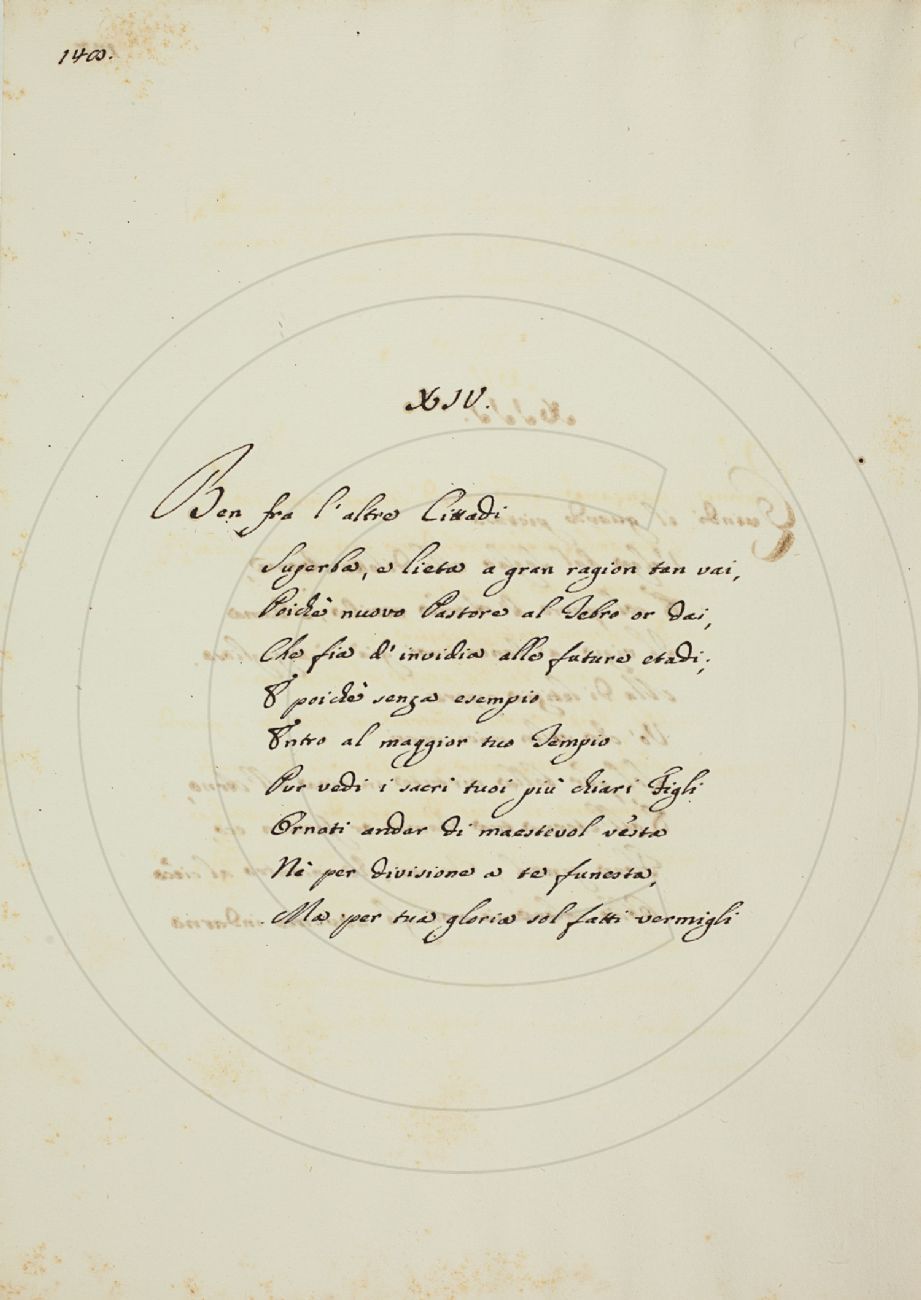 148.
XIV.
Ben fra l'altre Cittadi
Superba, e lieta a gran ragion ten vai,
Poichè nuovo Pastore al Tebro or dai,
Che fia d'invidia alle future etadi;
E poichè senza esempio
Entro al maggior tuo Tempio
Pur vedi i sacri tuoi più chiari Figli
Ornati andar di maestevol vesta
Nè per divisione a te funesta,
Ma per tua gloria sol fatti vermigli